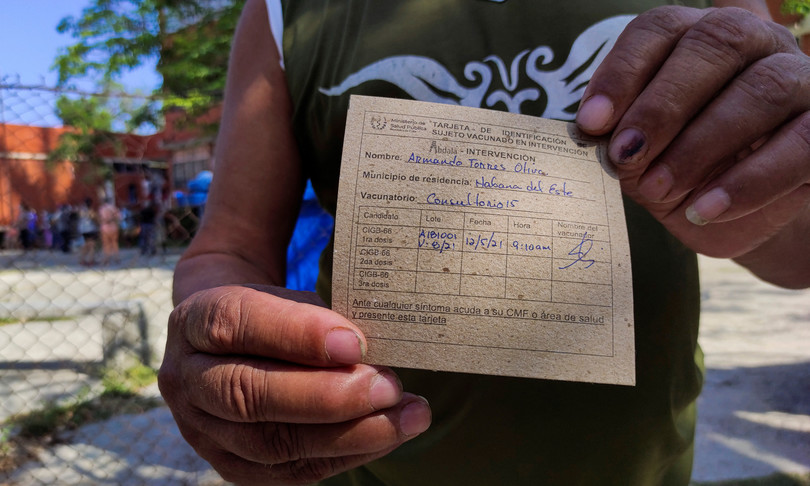 Ministerio de
Salud Pública
TARJETA - DE - IDENTIFICACIÓN
SUJETO VACUNADO EN INTERVENCIÓN
Abdala - INTERVENCIÓN
Nombre: Armando Torres Oliva
Municipio de residencia: Habana del Este
Vacunatorio: Consultorio 15
Candidato Lote Fecha Hora Nombre del vacunador
CIGB-66 1ra dosis 12/5/21 9:10am
CIGB-66 2da dosis
CIGB-66 3ra dosis
Ante cualquier síntoma acuda a su CMF o área de salud
y presente esta tarjeta